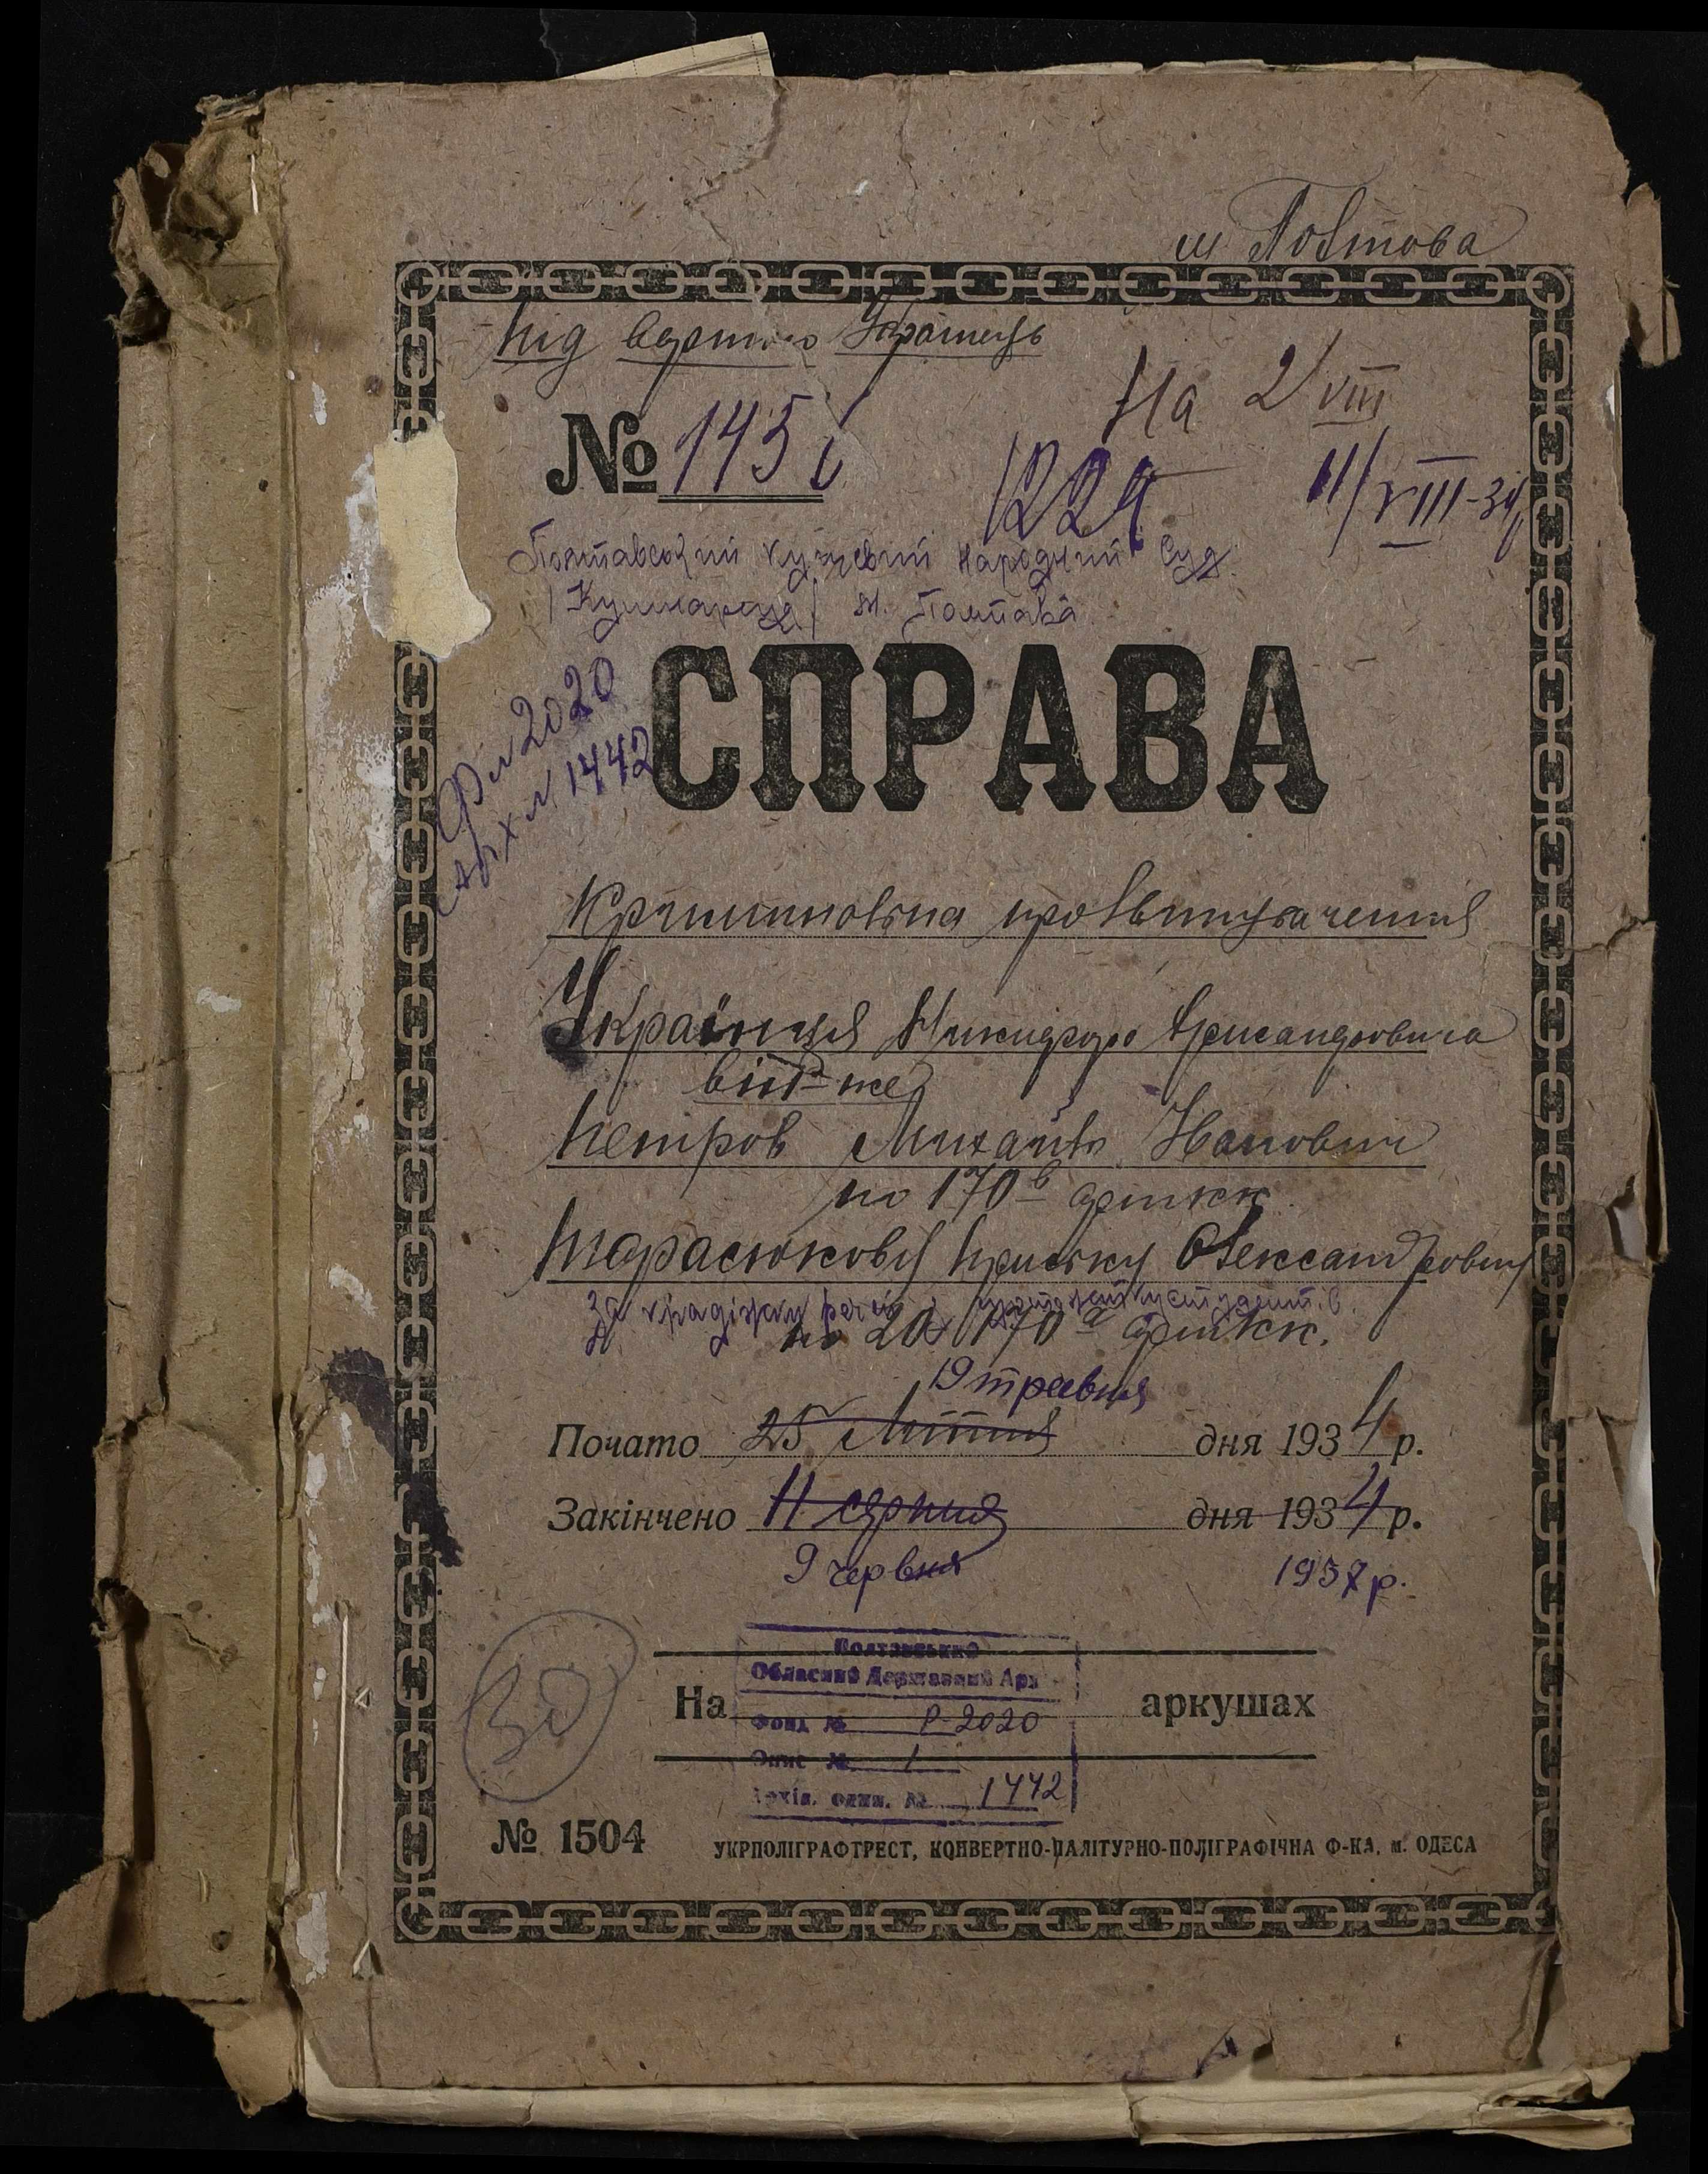 м Полтова
Під вартою Украінець
На 2/VIII
№ 145
122
11/VIII-34
Полтавський кущевий народний Суд
м. Полтава
Ф № 2020
Арх № 1442
СПРАВА
Криминольна про звинувачення
Українця Никифора
він-же
Петров Михайло Иванович
по 170 в арт кк
Тарасюкову Приську Олександровну
за крадіжку речей
по 20 170 а арт кк.
19 травня
Почато 25 Липня дня 1934 р.
Закінчено 11 серпня дня 1934 р.
9 червня 1937 р.
30
На аркушах
Полтавський
Обласний Державний Арх
Фонд № Р-2020
Опис № 1
Архів. один. № 1442
№ 1504 УКРПОЛІГРАФТРЕСТ, КОНВЕРТНО-ПАЛІТУРНО-ПОЛІГРАФІЧНА Ф-КА, м. ОДЕСА